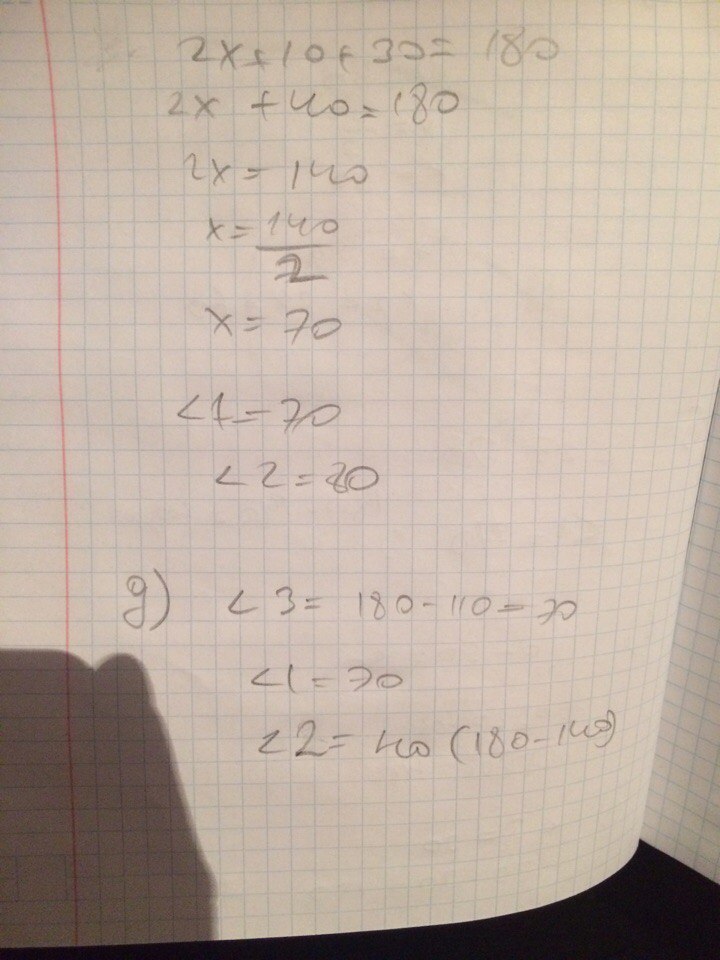 2x+10+30=180
2x +40=180
2x=140
x=140/2
x=70
<1=70
<2=80
g) <3= 180-110=70
<1=70
<2= 40 (180-140)